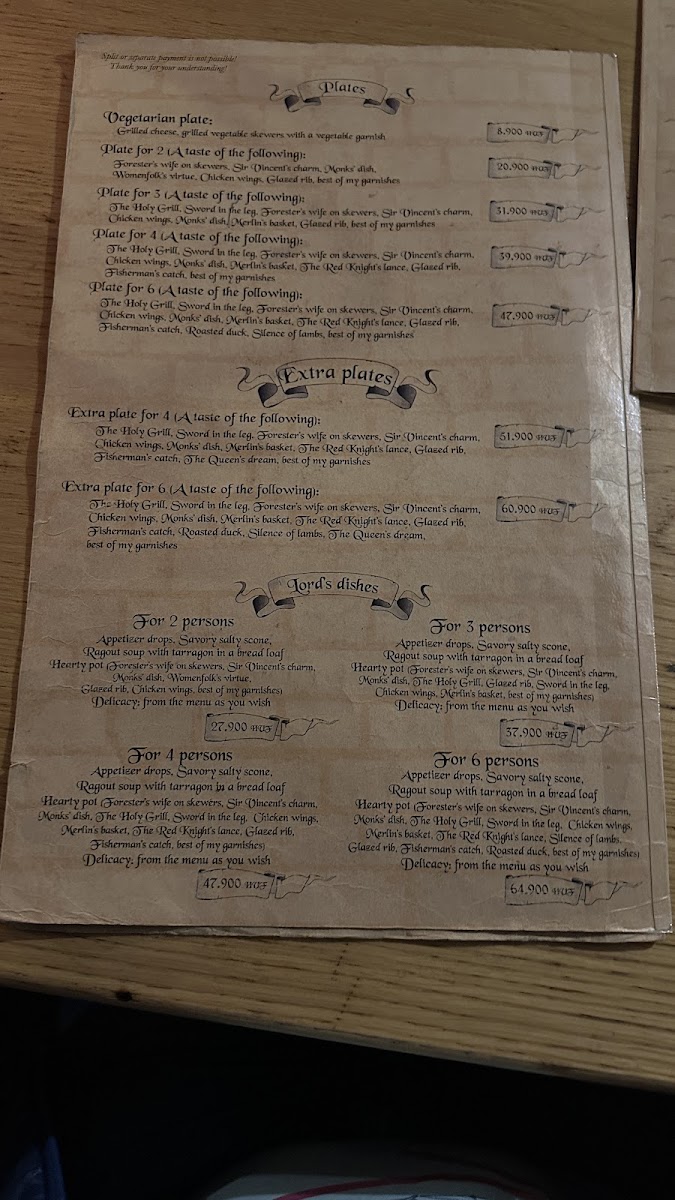 Split or separate payment is not possible!
Thank you for your understanding!
Plates
Vegetarian plate:
Grilled cheese, grilled vegetable skewers with a vegetable garnish
8.900 HUF
Plate for 2 (A taste of the following):
Forester's wife on skewers, Sir Vincent's charm, Monks' dish,
Womenfolk's virtue, Chicken wings, Glazed rib, best of my garnishes
20.900 HUF
Plate for 3 (A taste of the following):
The Holy Grill, Sword in the leg, Forester's wife on skewers, Sir Vincent's charm,
Chicken wings, Monks' dish, Merlin's basket, Glazed rib, best of my garnishes
31.900 HUF
Plate for 4 (A taste of the following):
The Holy Grill, Sword in the leg, Forester's wife on skewers, Sir Vincent's charm,
Chicken wings, Monks' dish, Merlin's basket, The Red Knight's lance, Glazed rib,
Fisherman's catch, best of my garnishes
39.900 HUF
Plate for 6 (A taste of the following):
The Holy Grill, Sword in the leg, Forester's wife on skewers, Sir Vincent's charm,
Chicken wings, Monks' dish, Merlin's basket, The Red Knight's lance, Glazed rib,
Fisherman's catch, Roasted duck, Silence of lambs, best of my garnishes
47.900 HUF
Extra plates
Extra plate for 4 (A taste of the following):
The Holy Grill, Sword in the leg, Forester's wife on skewers, Sir Vincent's charm,
Chicken wings, Monks' dish, Merlin's basket, The Red Knight's lance, Glazed rib,
Fisherman's catch, The Queen's dream, best of my garnishes
51.900 HUF
Extra plate for 6 (A taste of the following):
The Holy Grill, Sword in the leg, Forester's wife on skewers, Sir Vincent's charm,
Chicken wings, Monks' dish, Merlin's basket, The Red Knight's lance, Glazed rib,
Fisherman's catch, Roasted duck, Silence of lambs, The Queen's dream,
best of my garnishes
60.900 HUF
Lord's dishes
For 2 persons
Appetizer drops, Savory salty scone,
Ragout soup with tarragon in a bread loaf
Hearty pot (Forester's wife on skewers, Sir Vincent's charm,
Monks' dish, Womenfolk's virtue,
Glazed rib, Chicken wings, best of my garnishes)
Delicacy: from the menu as you wish
27.900 HUF
For 3 persons
Appetizer drops, Savory salty scone,
Ragout soup with tarragon in a bread loaf
Hearty pot (Forester's wife on skewers, Sir Vincent's charm,
Monks' dish, The Holy Grill, Glazed rib, Sword in the leg,
Chicken wings, Merlin's basket, best of my garnishes)
Delicacy: from the menu as you wish
37.900 HUF
For 4 persons
Appetizer drops, Savory salty scone,
Ragout soup with tarragon in a bread loaf
Hearty pot (Forester's wife on skewers, Sir Vincent's charm,
Monks' dish, The Holy Grill, Sword in the leg, Chicken wings,
Merlin's basket, The Red Knight's lance, Glazed rib,
Fisherman's catch, best of my garnishes)
Delicacy: from the menu as you wish
47.900 HUF
For 6 persons
Appetizer drops, Savory salty scone,
Ragout soup with tarragon in a bread loaf
Hearty pot (Forester's wife on skewers, Sir Vincent's charm,
Monks' dish, The Holy Grill, Sword in the leg, Chicken wings,
Merlin's basket, The Red Knight's lance, Silence of lambs,
Glazed rib, Fisherman's catch, Roasted duck, best of my garnishes)
Delicacy: from the menu as you wish
64.900 HUF